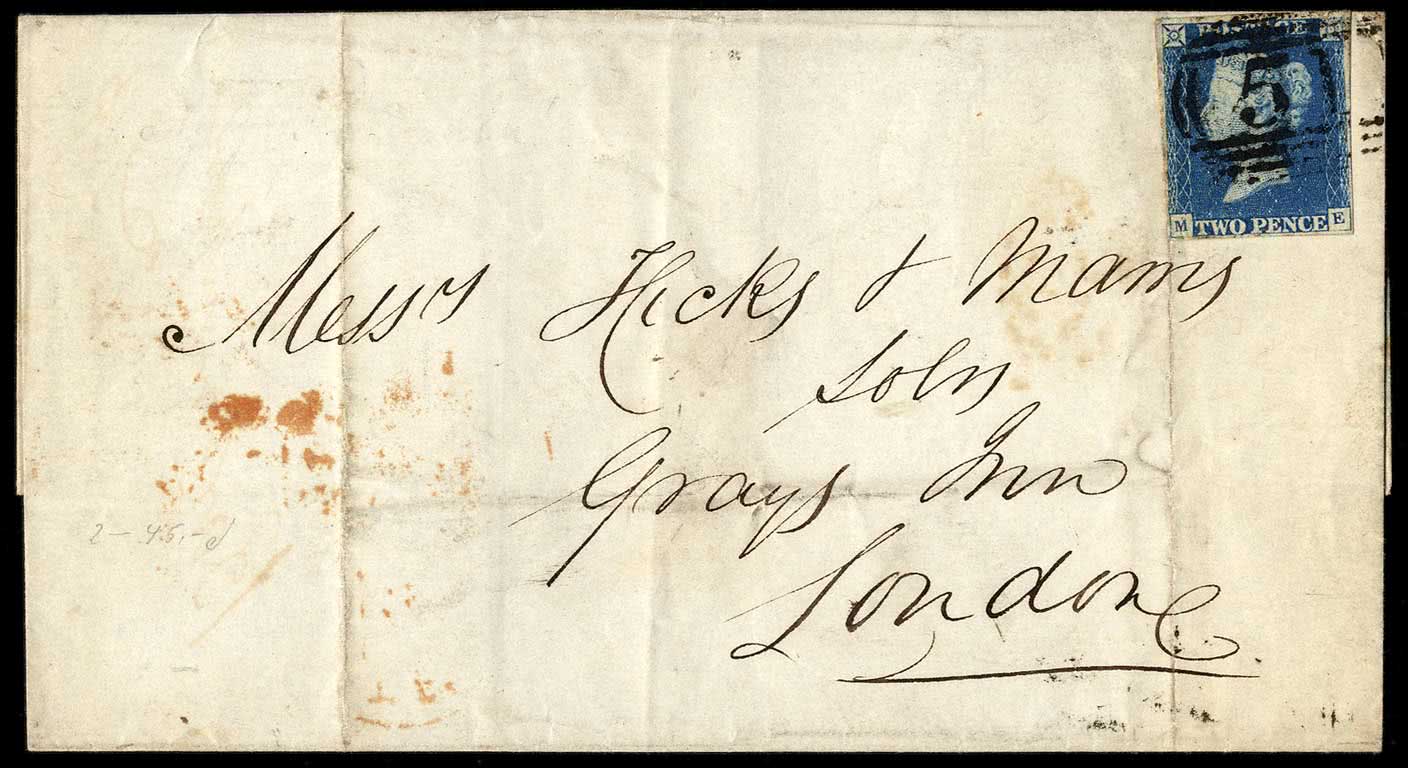 POSTAGE
5
M TWO PENCE E
Messrs Hicks &
Solrs
Grays Inn
London